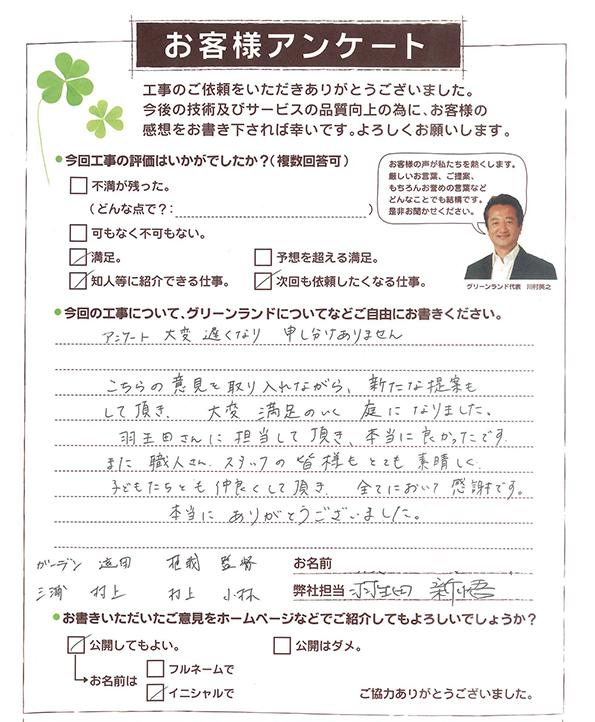 お客様アンケート
工事のご依頼をいただきありがとうございました。
今後の技術及びサービスの品質向上の為に、お客様の
感想をお書き下されば幸いです。よろしくお願いします。
今回工事の評価はいかがでしたか？（複数回答可）
不満が残った。
（どんな点で？：）
可もなく不可もない。
満足。
予想を超える満足。
知人等に紹介できる仕事。
次回も依頼したくなる仕事。
お客様の声が私たちを熱くします。
厳しいお言葉、ご提案、
もちろんお誉めの言葉など
どんなことでも結構です。
是非お聞かせください。
グリーンランド代表 川村英之
今回の工事について、グリーンランドについてなどご自由にお書きください。
アンケート 大変 遅くなり 申し分けありません
こちらの意見を取り入れながら、新たな提案も
して頂き、大変 満足のいく 庭に なりました。
羽生田さんに 担当して頂き、本当に良かったです。
また 職人さん、スタッフの皆様もとても 素晴しく、
子どもたちとも仲良くして頂き、全てにおいて 感謝です。
本当に ありがとうございました。
ガーデン 監督
三浦 村上 村上 小林
お名前
弊社担当 羽生田 新悟
お書きいただいたご意見をホームページなどでご紹介してもよろしいでしょうか？
公開してもよい。
公開はダメ。
お名前は
フルネームで
イニシャルで
ご協力ありがとうございました。